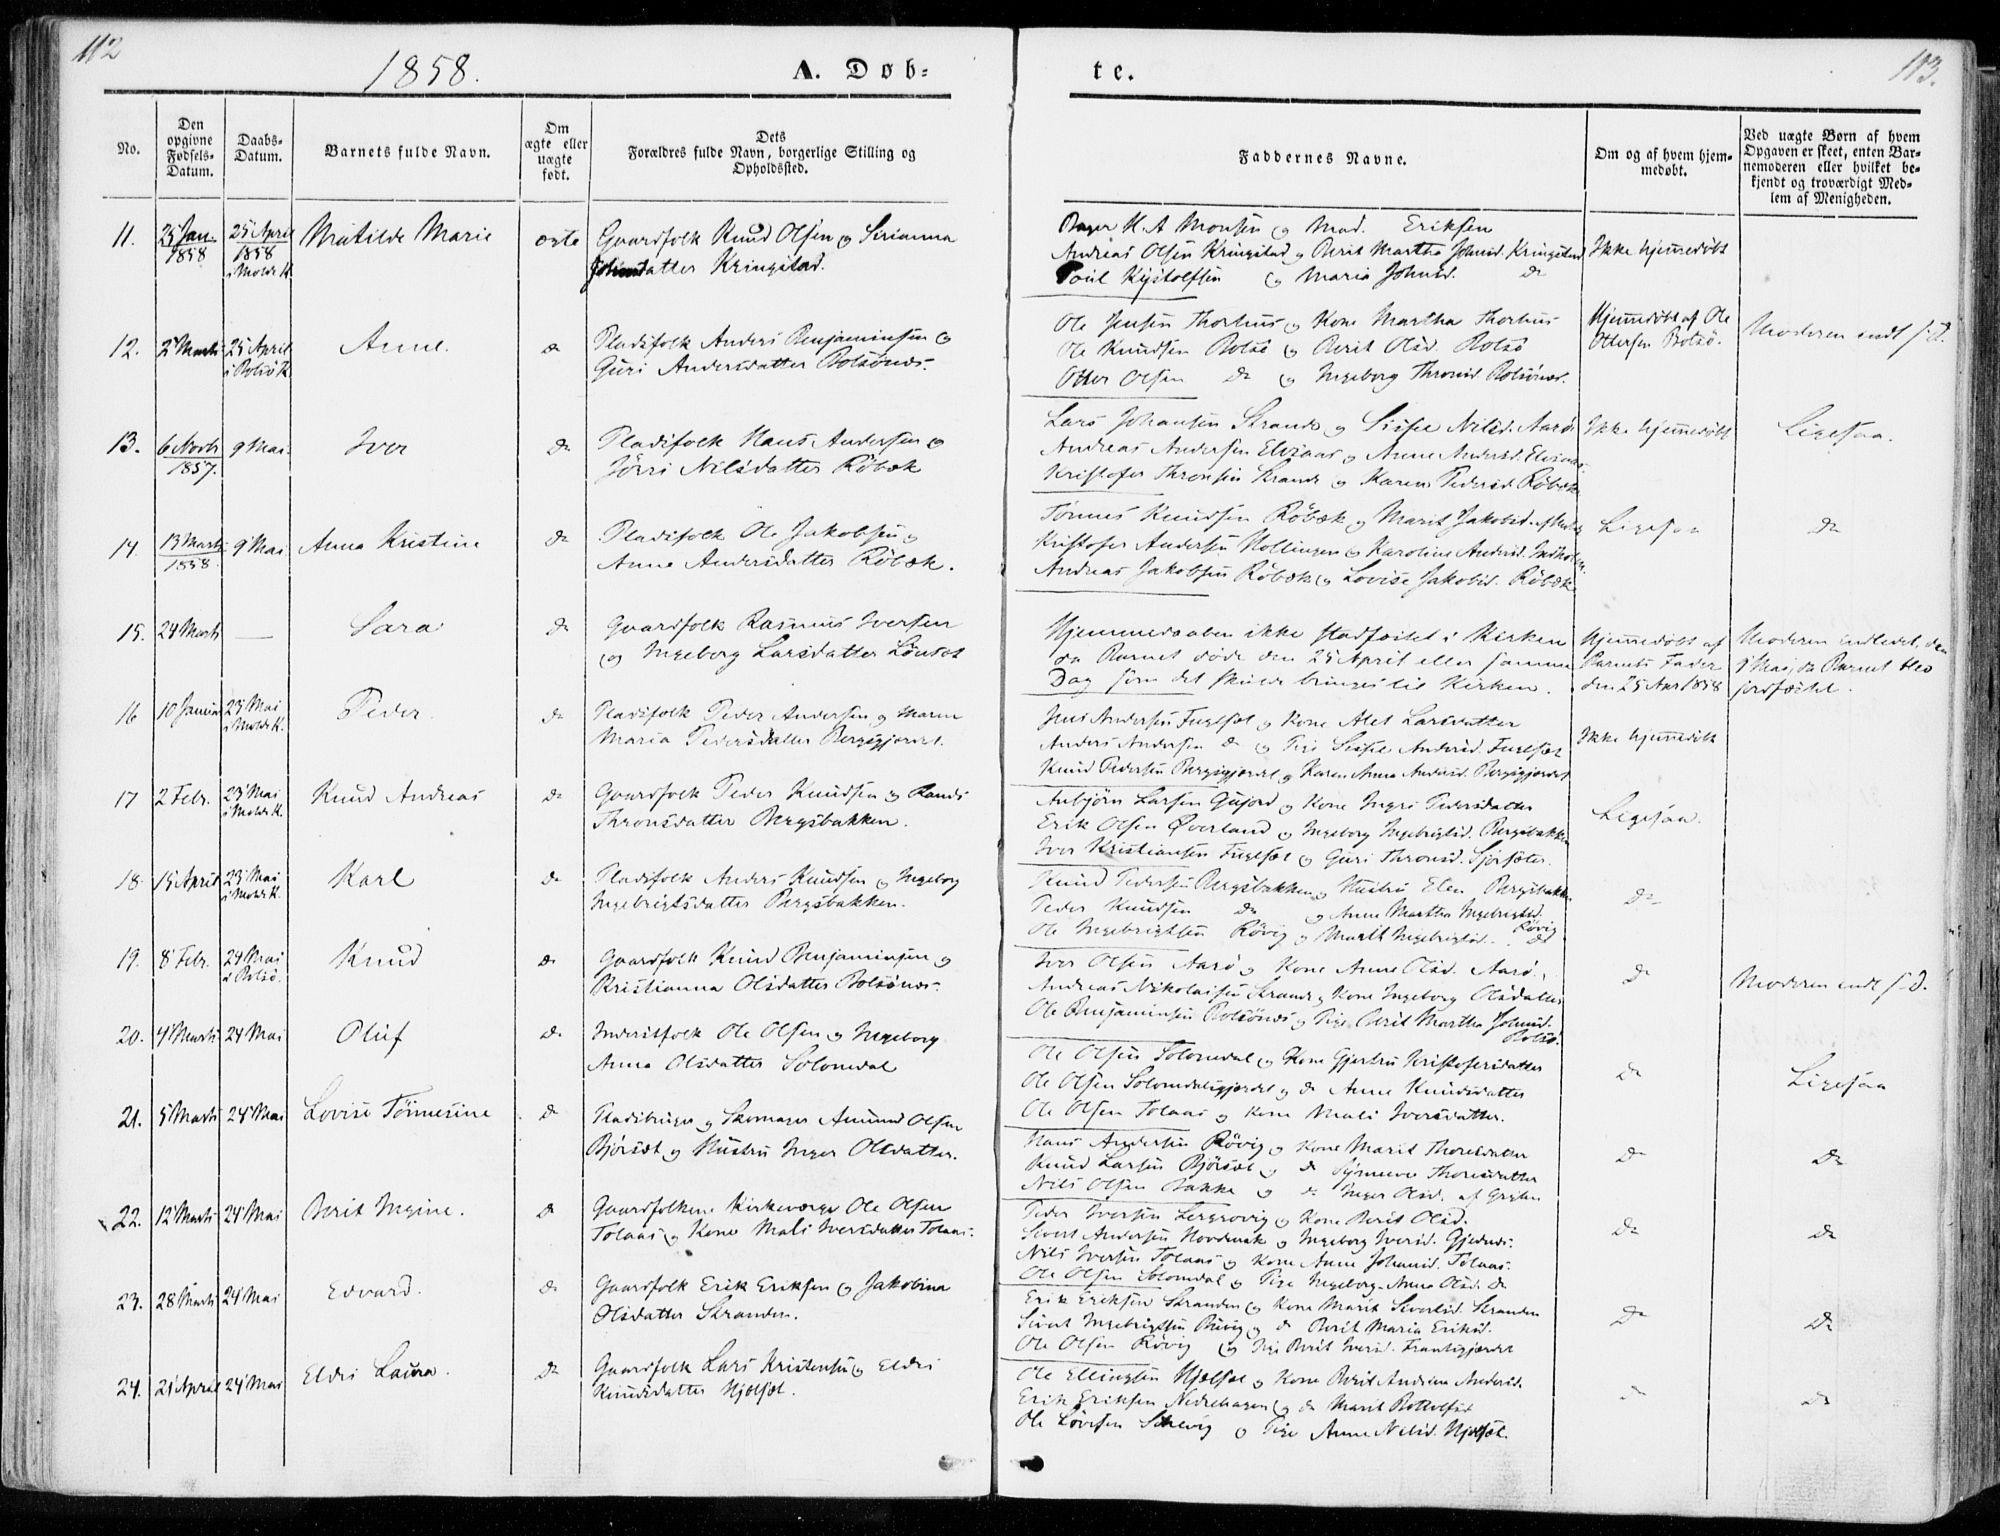 112
1858.
A. Døb-
te.
113.
No.
Den opgivne Fødsels-Datum.
Daabs-Datum.
Barnets fulde Navn.
Om ægte eller uægte født.
Dets Forældres fulde Navn, borgerlige Stilling og Opholdssted.
Faddernes Navne.
Om og af hvem hjem-medøbt.
Ved uægte Børn af hvem Opgaven er skeet, enten Bar-nemoderen eller hvilket be-kjendt og troværdigt Med-lem af Menigheden.
11.
25 Jan. 1858
25 April 1858 i Molde K.
Matilde Marie
ægte
Gaardfolk Knud Olsen og
Kringstad.
Mad. Eriksen
Andreas Olsen Kringstad og Berit Martha Johnsd. Kringstad
og Maria Johnsd. Do
Ikke hjemmedøbt
12.
2 Marts
25 April i Bolsö K.
Anne.
Do
Pladsfolk Anders Benjaminsen og
Guri Andersdatter Bolsönes.
Ole Jensen Thorhus og Kone Martha Thorhus
Ole Knudsen Bolsö og Berit Olsd. Bolsö
Otter Olsen Do og Ingeborg Thronsd. Bolsönes.
Hjemmedöbt af Ole
Ottersen Bolsö.
Moderen indl. s. D.
13.
6 Novb 1857.
9 Mai.
Iver
Do
Pladsfolk Hans Andersen og
Jörri Nilsdatter Röbæk
Lars Johansen Strande og Sissel Nilsd. Aarö
Andreas Andersen Elvsaas og Anne Andersd. Elvsaas.
Kristofer Thronsen Strande og Karen Pedersd. Röbæk
Ikke hjemmedöbt
Ligesaa.
14.
13 Marts 1858.
9 Mai
Anna Kristine
Do
Pladsfolk Ole Jakobsen og
Anne Andersdatter Röbæk.
Tönnes Knudsen Röbæk og Marit Jakobsd.
Kristofer Andersen Hollingen og Karoline Andersd.
Andreas Jakobsen Röbæk og Lovise Jakobsd. Röbæk
Ligesaa
Do
15.
24 Marts
—
Sara
Do
Gaardfolk Rasmus Iversen
og Ingeborg Larsdatter Lönset
Hjemmedaaben ikke stadfæstet i Kirken
da Barnet döde den 25 April eller samme
Dag som det skulde bringes til Kirken.
Hjemmedöbt af
Barnets Fader
den 25 Apr 1858
Moderen indledet, den
9 Mai, da Barnet blev
jordfæstet.
16
10 Januar
23 Mai i Molde K.
Peder.
Do
Pladsfolk Peder Andersen og Maren
Maria Pedersdatter Bergsgjerdet.
Jens Andersen Fuglset og Kone Alet Larsdatter
Anders Andersen Do og Pige Sissel Andersd. Fuglset
Knud Pedersen Bergsgjerdet og Karen Anna Andersd. Bergsgjerdet
Ikke hjemmedöbt
17
2 Febr.
23 Mai i Molde K.
Knud Andreas
Do
Gaardfolk Peder Knudsen og Randi
Thronsdatter Bergsbakken.
Anbjörn Larsen Gujord og Kone Ingri Pedersdatter
Erik Olsen Øverland og Ingeborg Ingebrigtsd. Bergsbakken
Iver Kristiansen Fuglset og Guri Thronsd.
Ligesaa.
18
15 April
23 Mai i Molde K.
Karl
Do
Pladsfolk Anders Knudsen og Ingeborg
Ingebrigtsdatter Bergsbakken.
Knud Pedersen Bergsbakken og Hustru Elen Bergsbakken
Peder Knudsen Do og Anne Martha Ingebrigtsd. Rövig
Ole Ingebrigtsen Rövig og Marit Ingebrigtsd. Do
Do
19.
8 Febr.
24 Mai i Bolsö.
Knud
Do
Gaardfolk Knud Benjaminsen og
Kristianna Olsdatter Bolsönes.
Iver Olsen Aarö og Kone Anne Olsd. Aarö.
Andreas Nikolaisen Strande og Kone Ingeborg Olsdatter
Ole Benjaminsen Bolsönes og Pige Berit Martha Johnsd. Bolsö.
Do
Moderen indl s. D.
20.
4 Marts
24 Mai
Oluf
Do
Inderstfolk Ole Olsen og Ingeborg
Anna Olsdatter Solomdal
Ole Olsen Solomdal og Kone Gjertru Kristofersdatter
Ole Olsen Solomdalsgjerdet og do Anne Knudsdatter
Ole Olsen Tolaas og Kone Mali Iversdatter.
Do
Ligesaa
21.
5 Marts
24 Mai
Lovise Tönnesine
Do
Pladsbruger og Skomager Amund Olsen
Bjórsæt og Hustru Inger Olsdatter.
Hans Andersen Rövig og Kone Marit Thoresdatter
Knud Larsen Bjórsæt og do Synneve Thoresdatter
Nils Olsen Bakke og do Inger Olsd.
Do
Do
22.
12 Marts
24 Mai
Berit Ingine.
Do
Gaardfolkene Kirkeværge Ole Olsen
Tolaas og Kone Mali Iversdatter Tolaas.
Peder Iversen og Kone Berit Olsd.
Sivert Andersen Hovdenak og Ingeborg Iversd.
Nils Iversen Tolaas og Kone Anne Johansd. Tolaas.
Ole Olsen Solomdal og Pige Ingeborg Anna Olsd. Do
Do
Do
23.
28 Marts
24 Mai
Edvard.
Do
Gaardfolk Erik Eriksen og Jakobina
Olsdatter Stranden.
Erik Eriksen Stranden og Kone Marit Sivertsd. Stranden
Sivert Ingebrigtsen og do Berit Maria Eriksd.
Ole Olsen Rövig og Pige Berit Iversd.
Do
Do
24.
21 April
24 Mai
Eldri Laura.
Do
Gaardfolk Lars Kristensen og Eldri
Knudsdatter Hjelset.
Ole Ellingsen Hjelset og Kone Berit Andrina Andersd.
Erik Eriksen Nedrehagen og do Marit
og Pige Anne Nilsd. Hjelset.
Do
Do